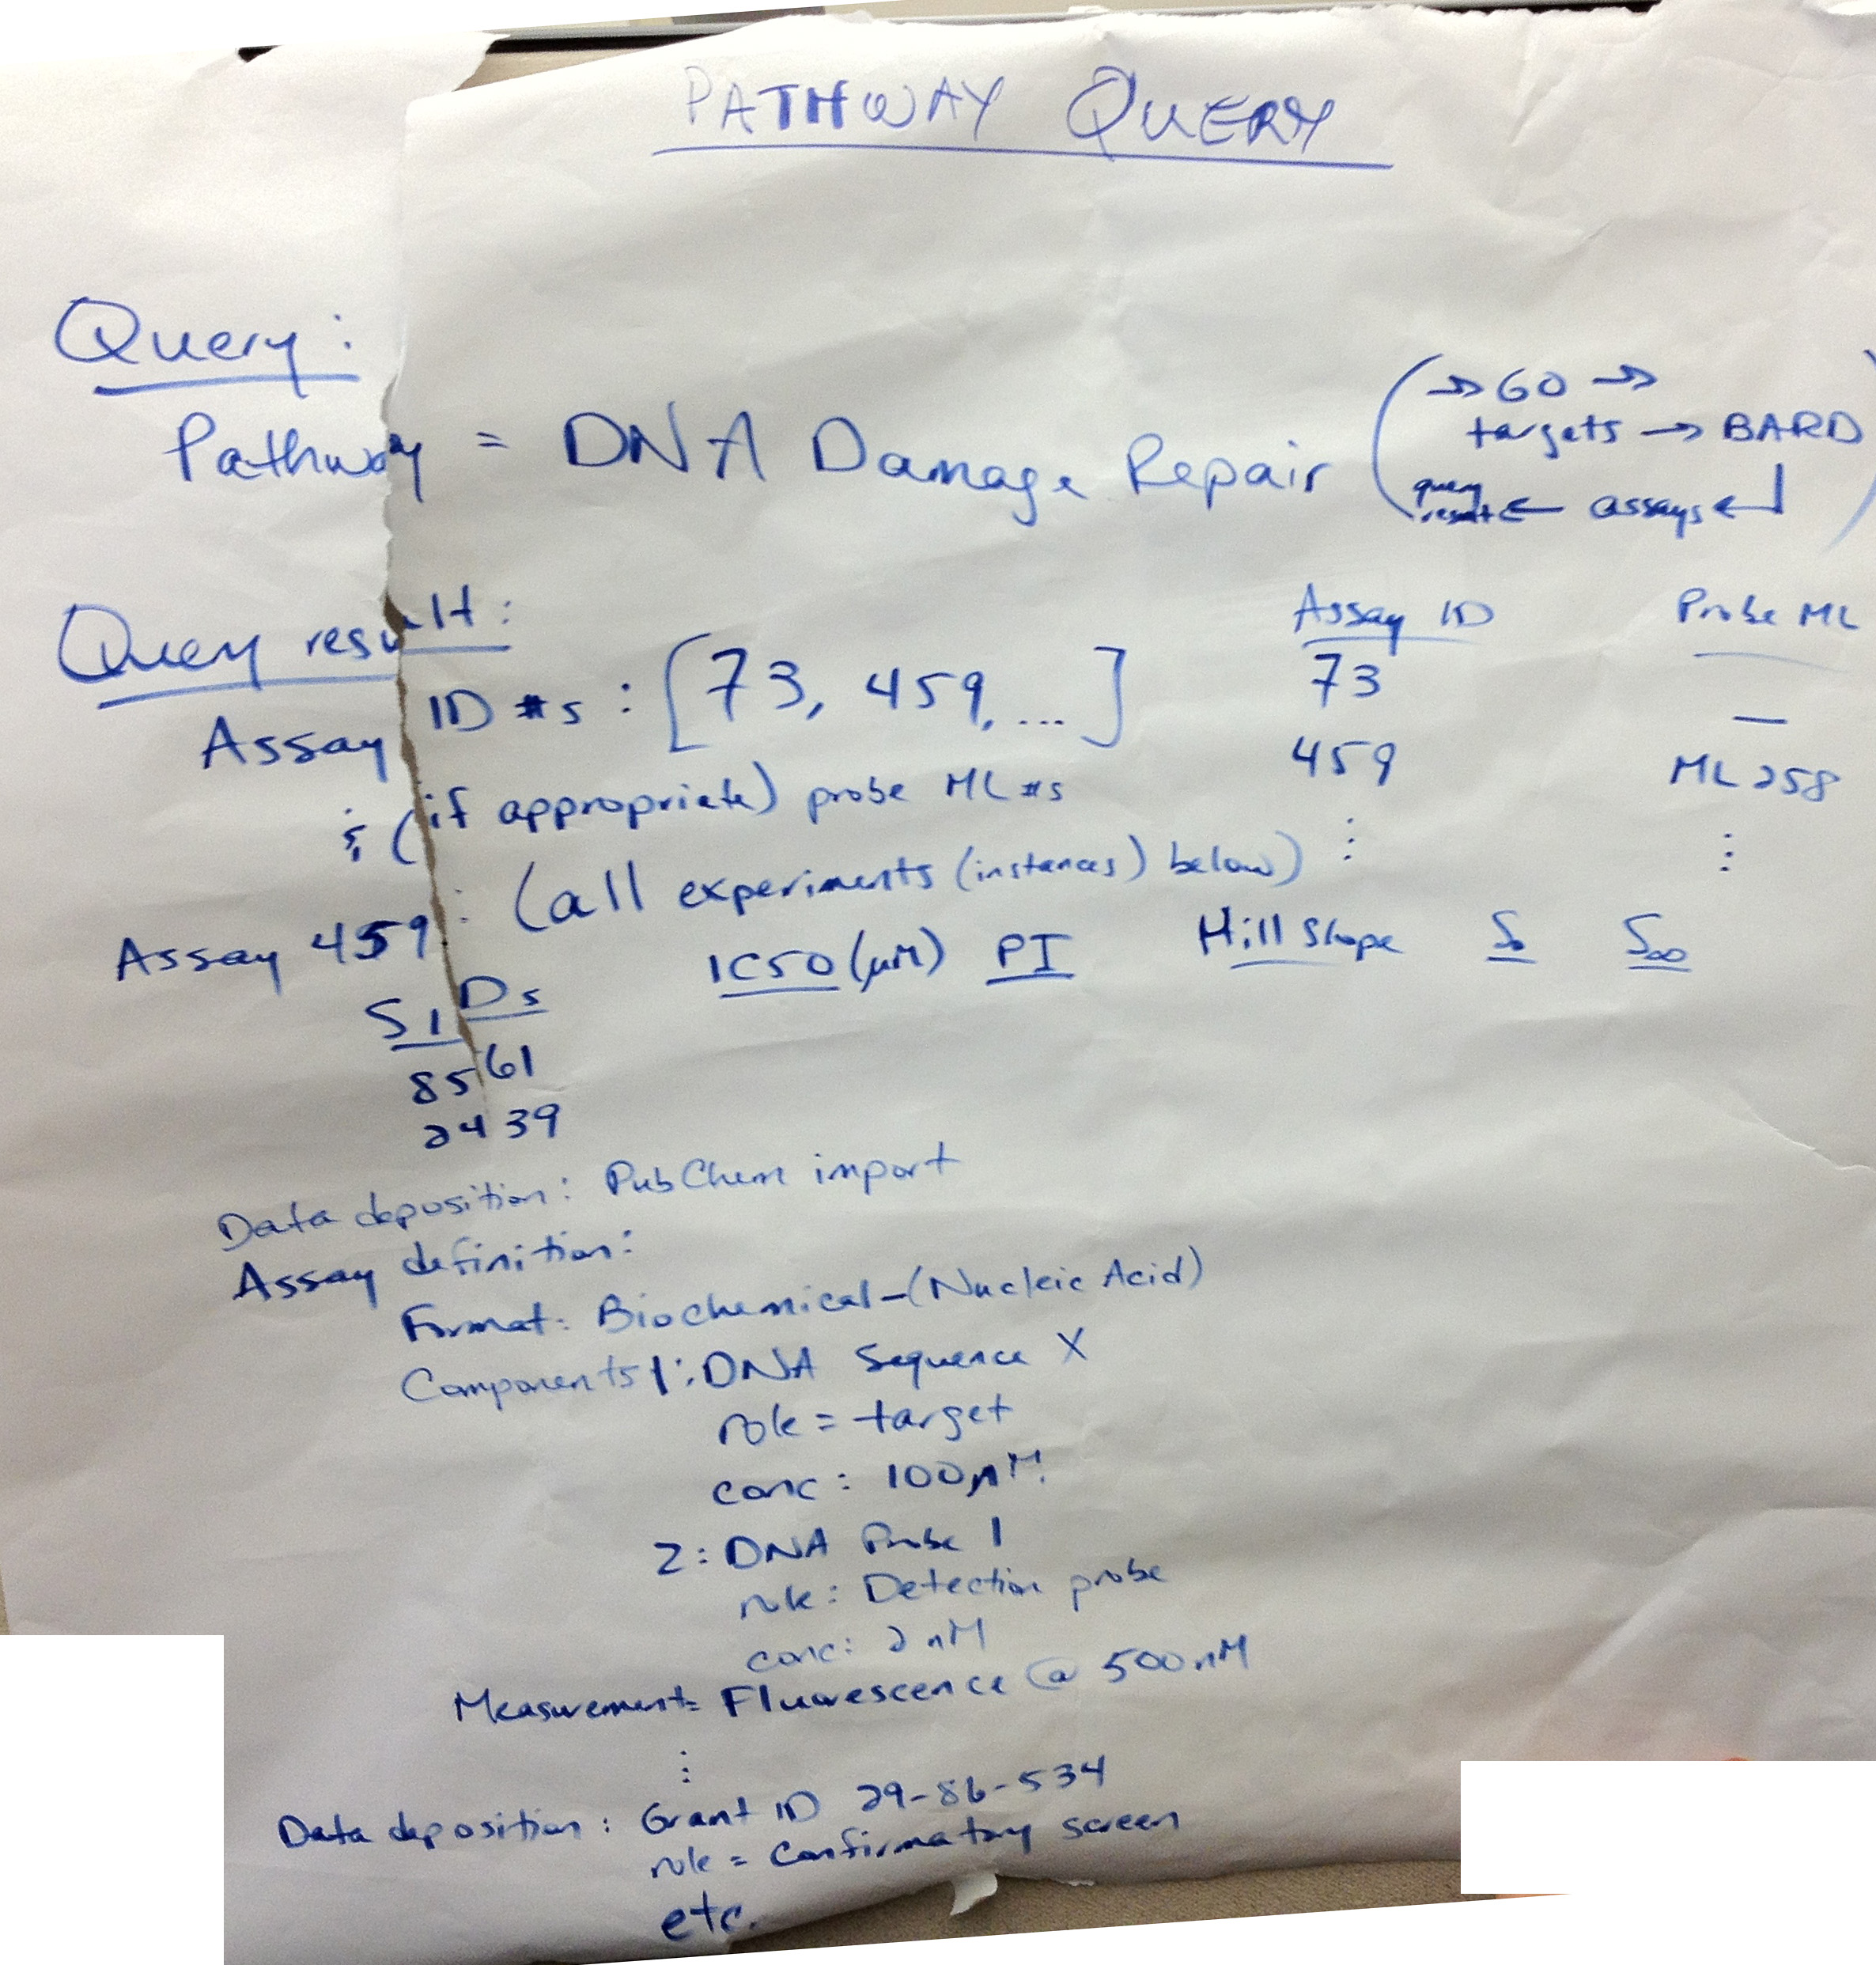 PATHWAY QUERY
Query:
Pathway = DNA Damage Repair
(→ GO →
targets → BARD
query result ← assays ↵)
Query result:
Assay ID #s : [73, 459, ...]
; (if appropriate) probe ML #s
Assay ID Probe ML
73 —
459 ML258
⋮ ⋮
Assay 459: (all experiments (instances) below)
SIDs IC50 (μM) PI Hill Slope S₀ S∞
8561
2439
Data deposition: PubChem import
Assay definition:
Format: Biochemical - (Nucleic Acid)
Components 1: DNA Sequence X
role = target
conc: 100 nM
2: DNA Probe 1
role: Detection probe
conc: 2 nM
Measurement: Fluorescence @ 500 nM
⋮
Data deposition: Grant ID 29-86-534
role = Confirmatory screen
etc.